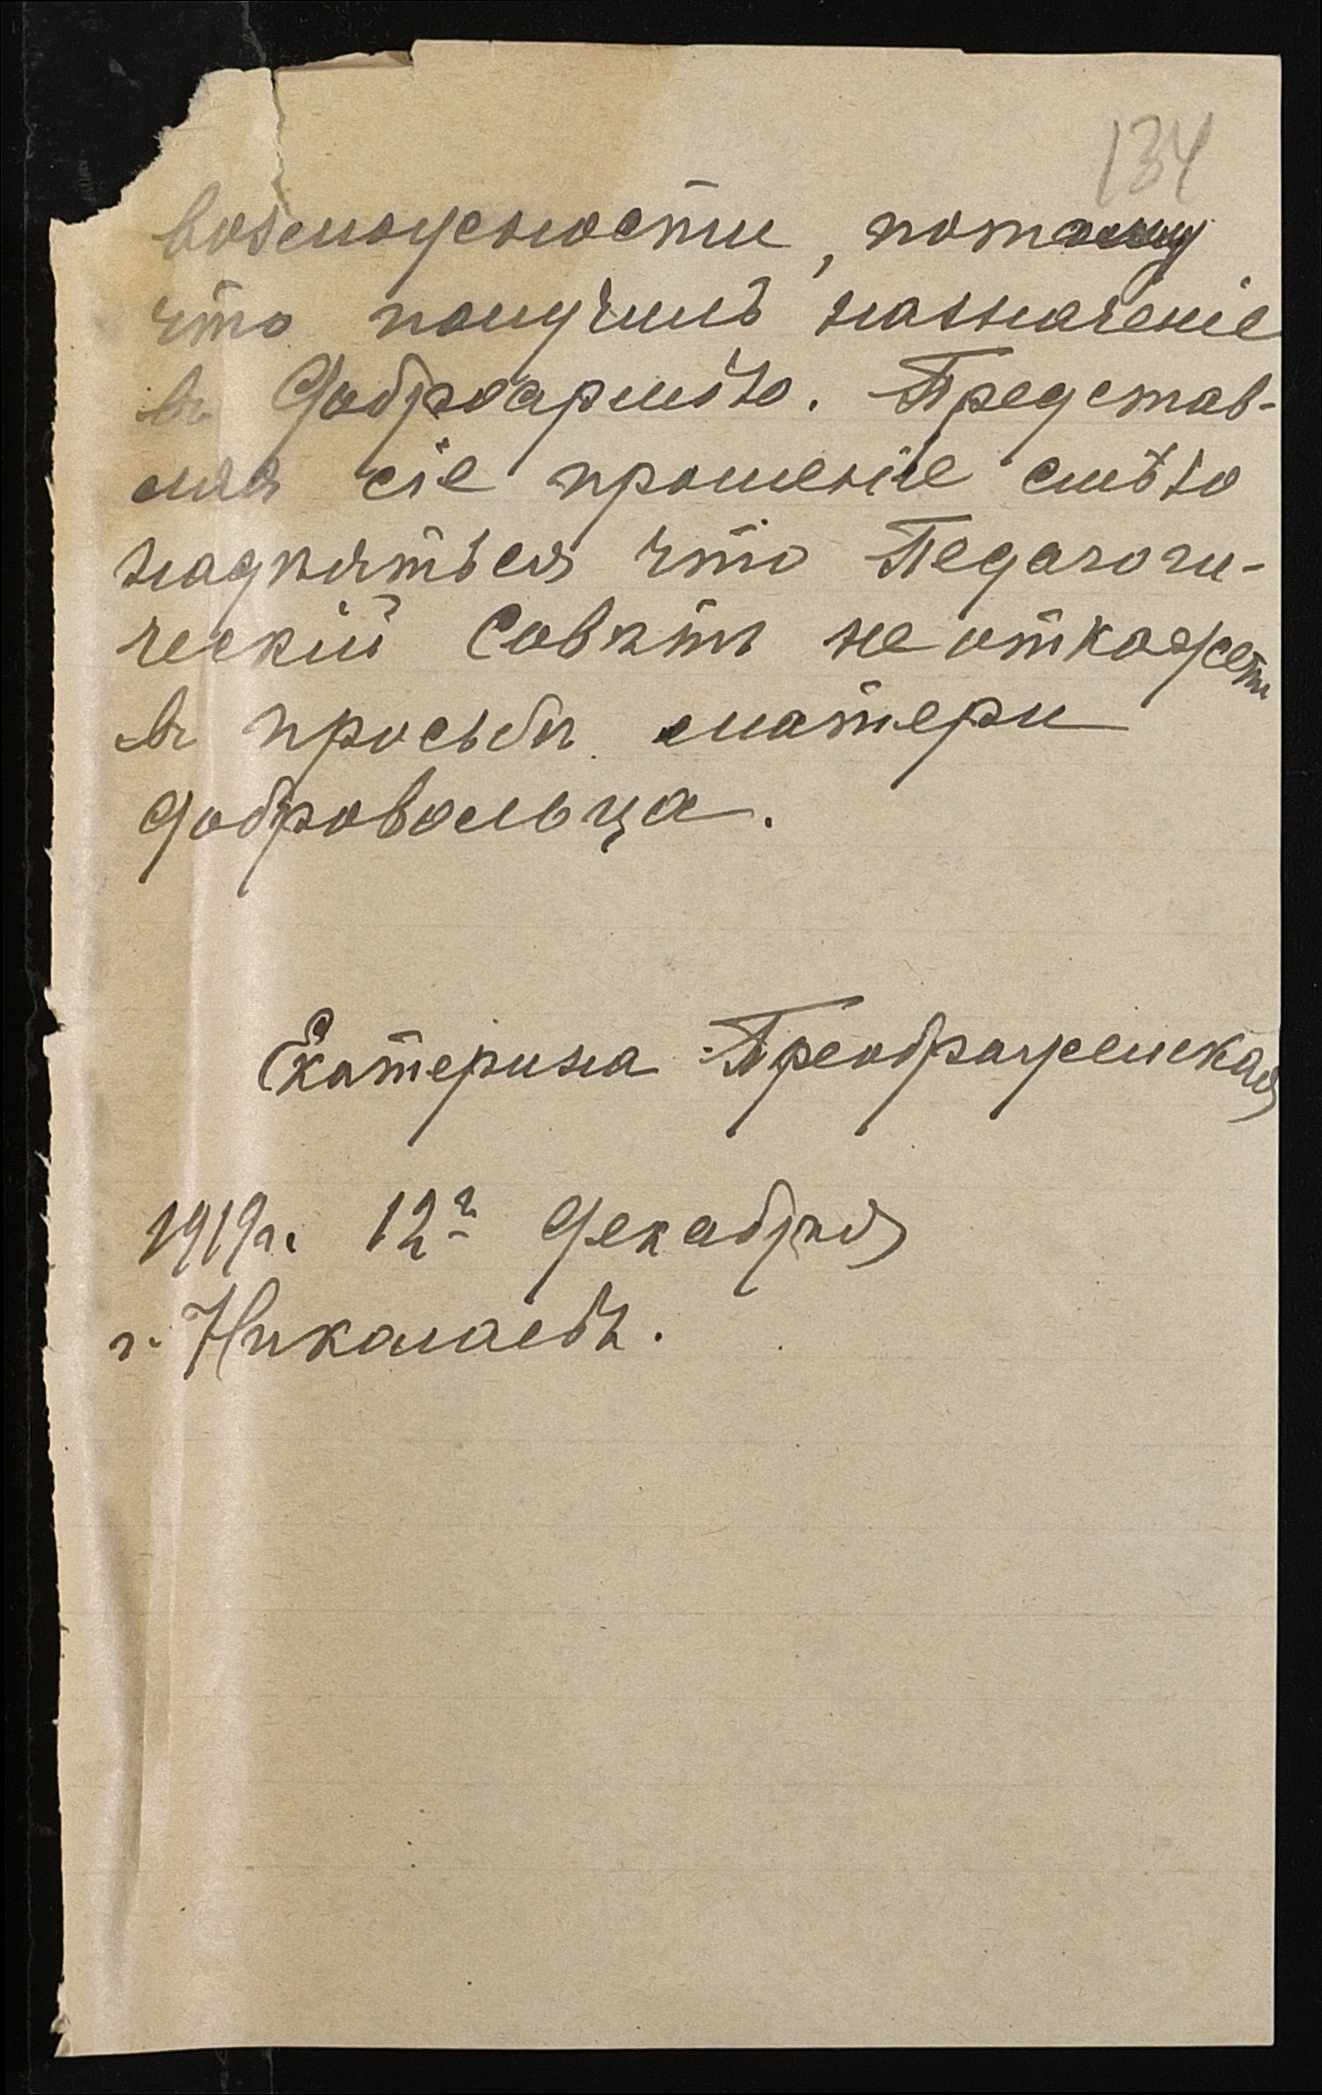 134
возможности, потому
что получилъ назначеніе
въ Доброармію. Представ-
ляя сіе прошеніе смѣю
надѣяться что Педагоги-
ческій Совѣтъ не откажетъ
въ просьбѣ матери
добровольца.
Екатерина Преображенская
1919 г. 12го Декабря
г. Николаевъ.